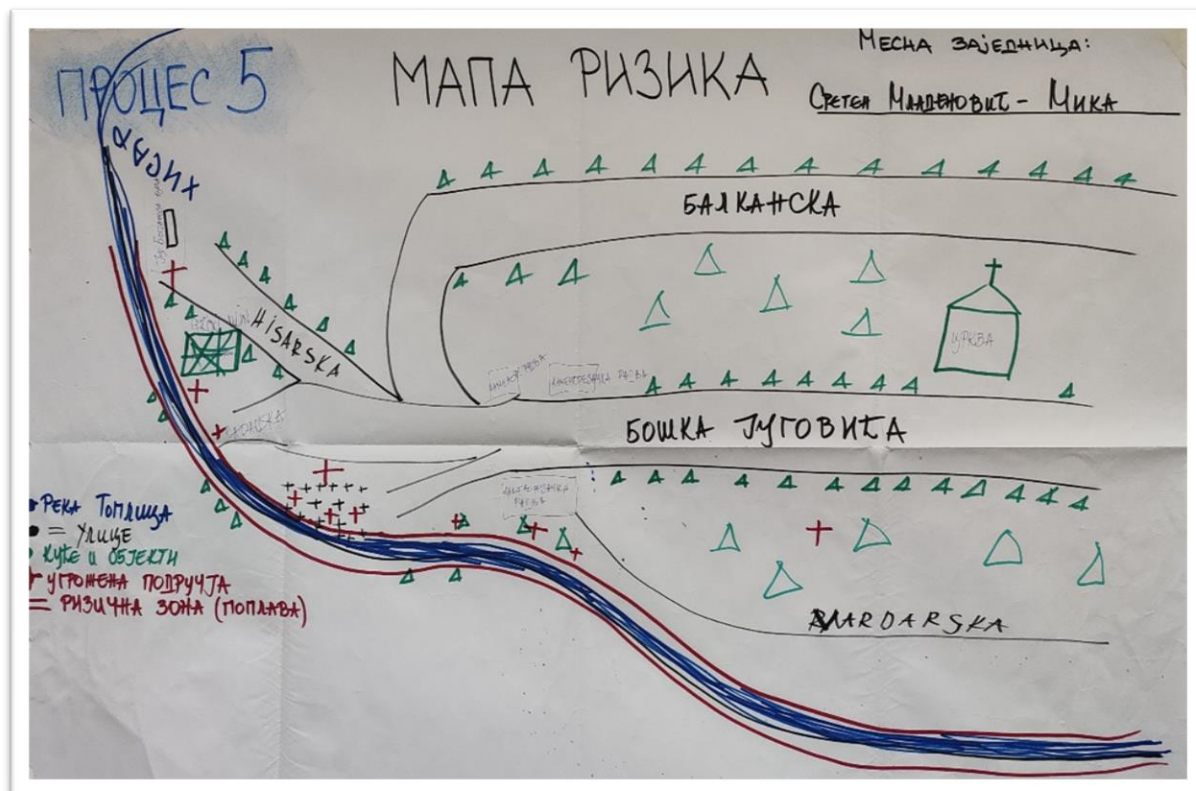 ПРОЦЕС 5
МАПА РИЗИКА
МЕСНА ЗАЈЕДНИЦА:
СРЕТЕН МЛАДЕНОВИЋ - МИКА
ХИСАР
БАЛКАНСКА
HISARSKA
ЦРКВА
БОШКА ЈУГОВИЋА
РЕКА ТОПЛИЦА
= УЛИЦЕ
КУЋЕ И ОБЈЕКТИ
УГРОЖЕНА ПОДРУЧЈА
= РИЗИЧНА ЗОНА (ПОПЛАВА)
VARDARSKA